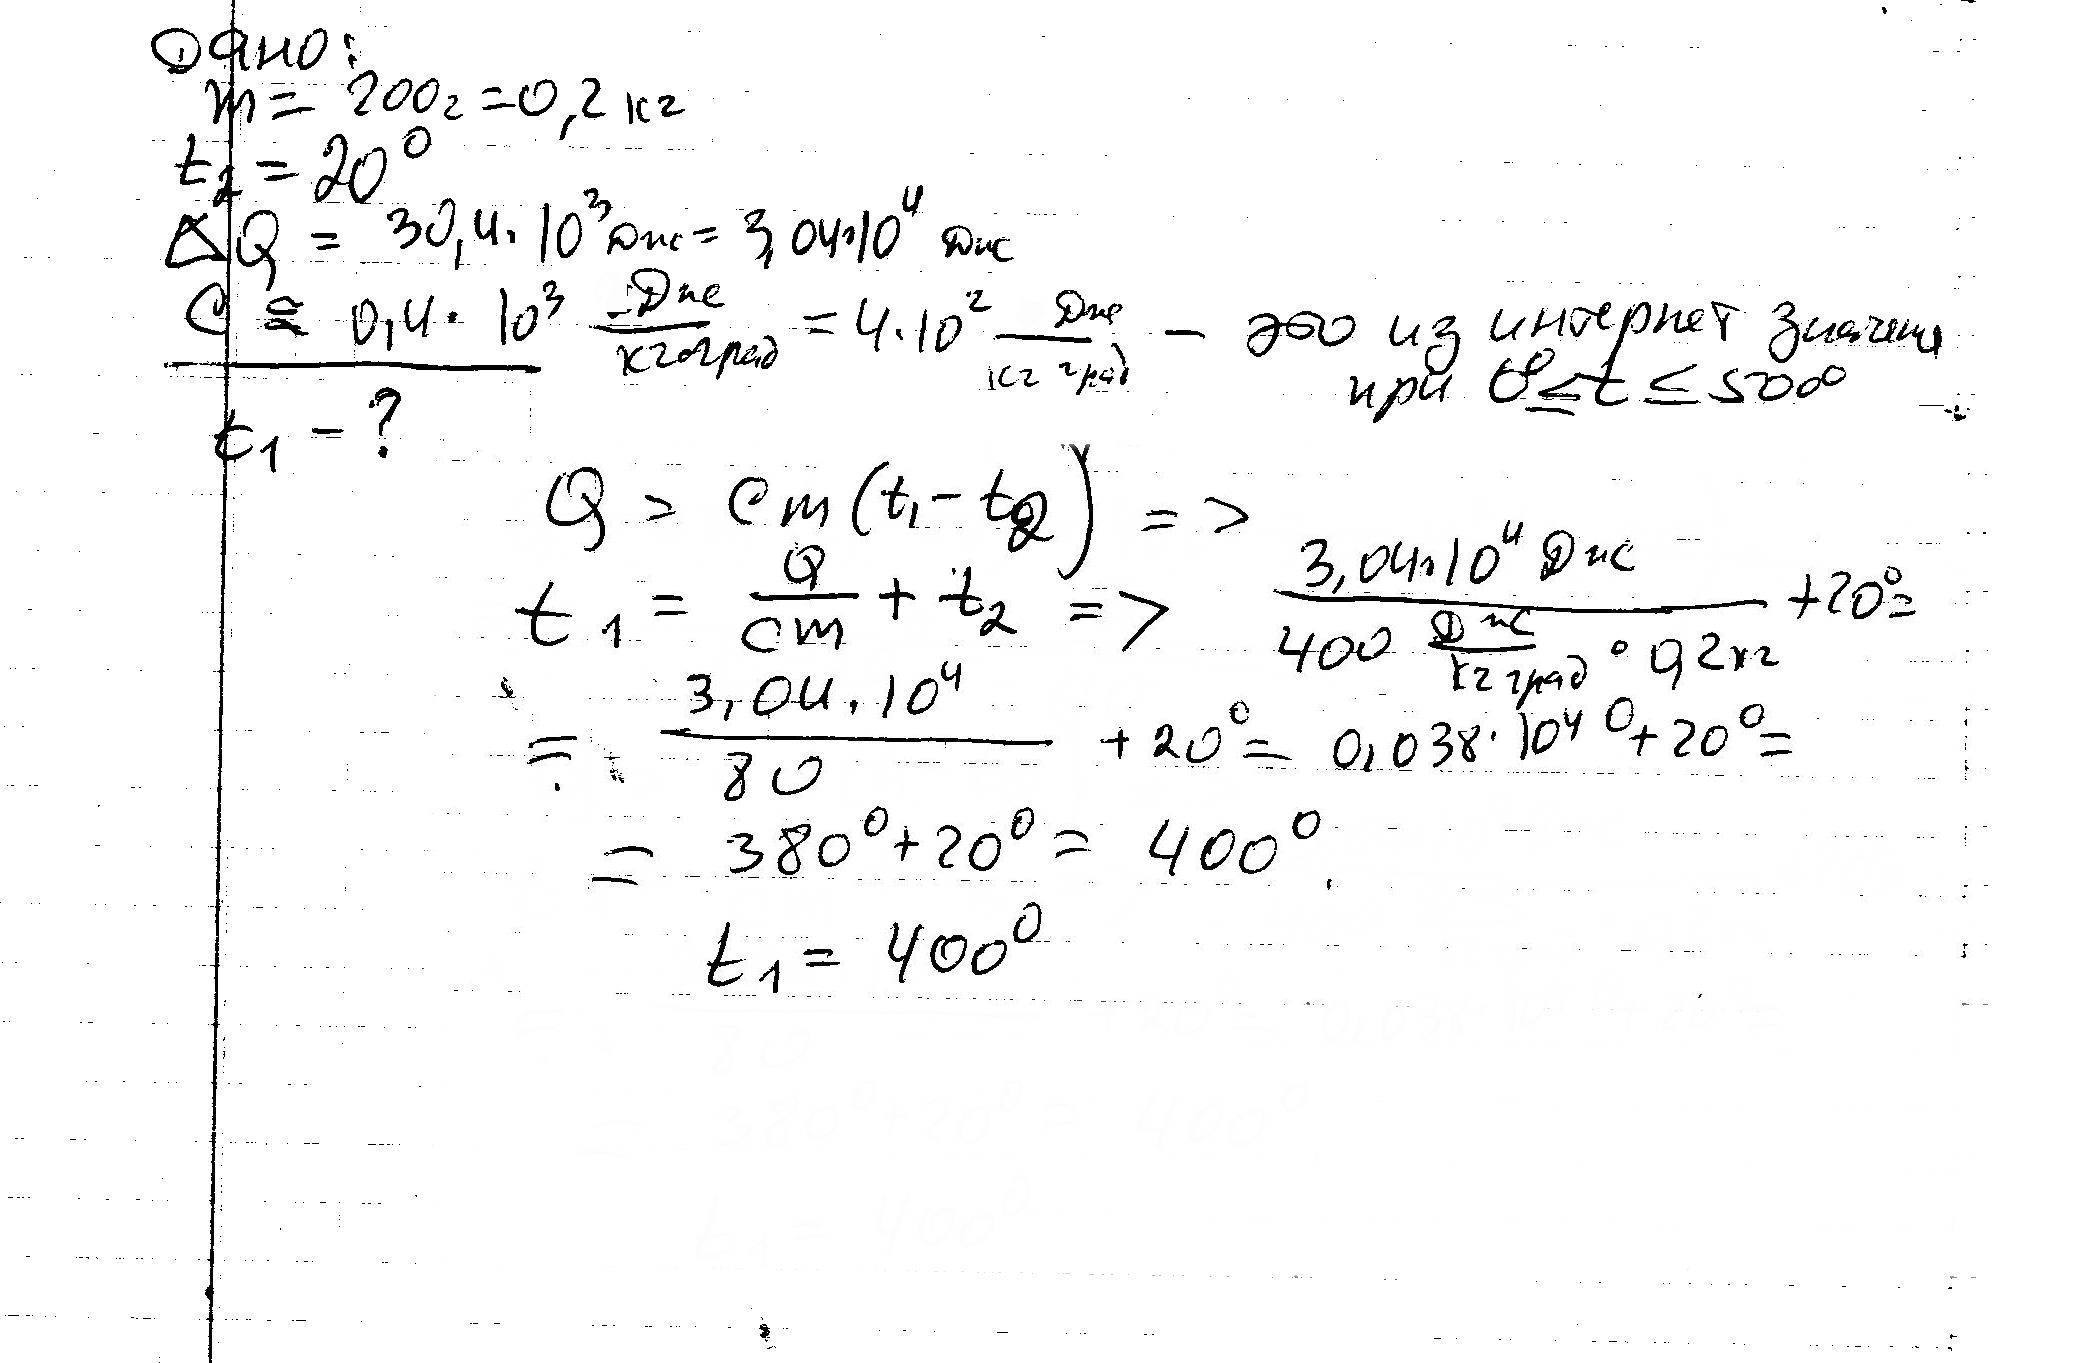 Дано:
m = 200г = 0,2 кг
t₂ = 20⁰
ΔQ = 30,4 · 10³ Дж = 3,04·10⁴ Дж
C ≅ 0,4 · 10³ Дж/кг·град = 4·10² Дж/кг град – это из интернет значения
при 0⁰ ≤ t ≤ 500⁰
t₁ – ?
Q = cm(t₁ – t₂) =>
t₁ = Q/cm + t₂ => 3,04·10⁴ Дж / 400 Дж/кг град · 0,2кг + 20⁰ =
= 3,04·10⁴/80 + 20⁰ = 0,038·10⁴ ⁰ + 20⁰ =
= 380⁰ + 20⁰ = 400⁰.
t₁ = 400⁰